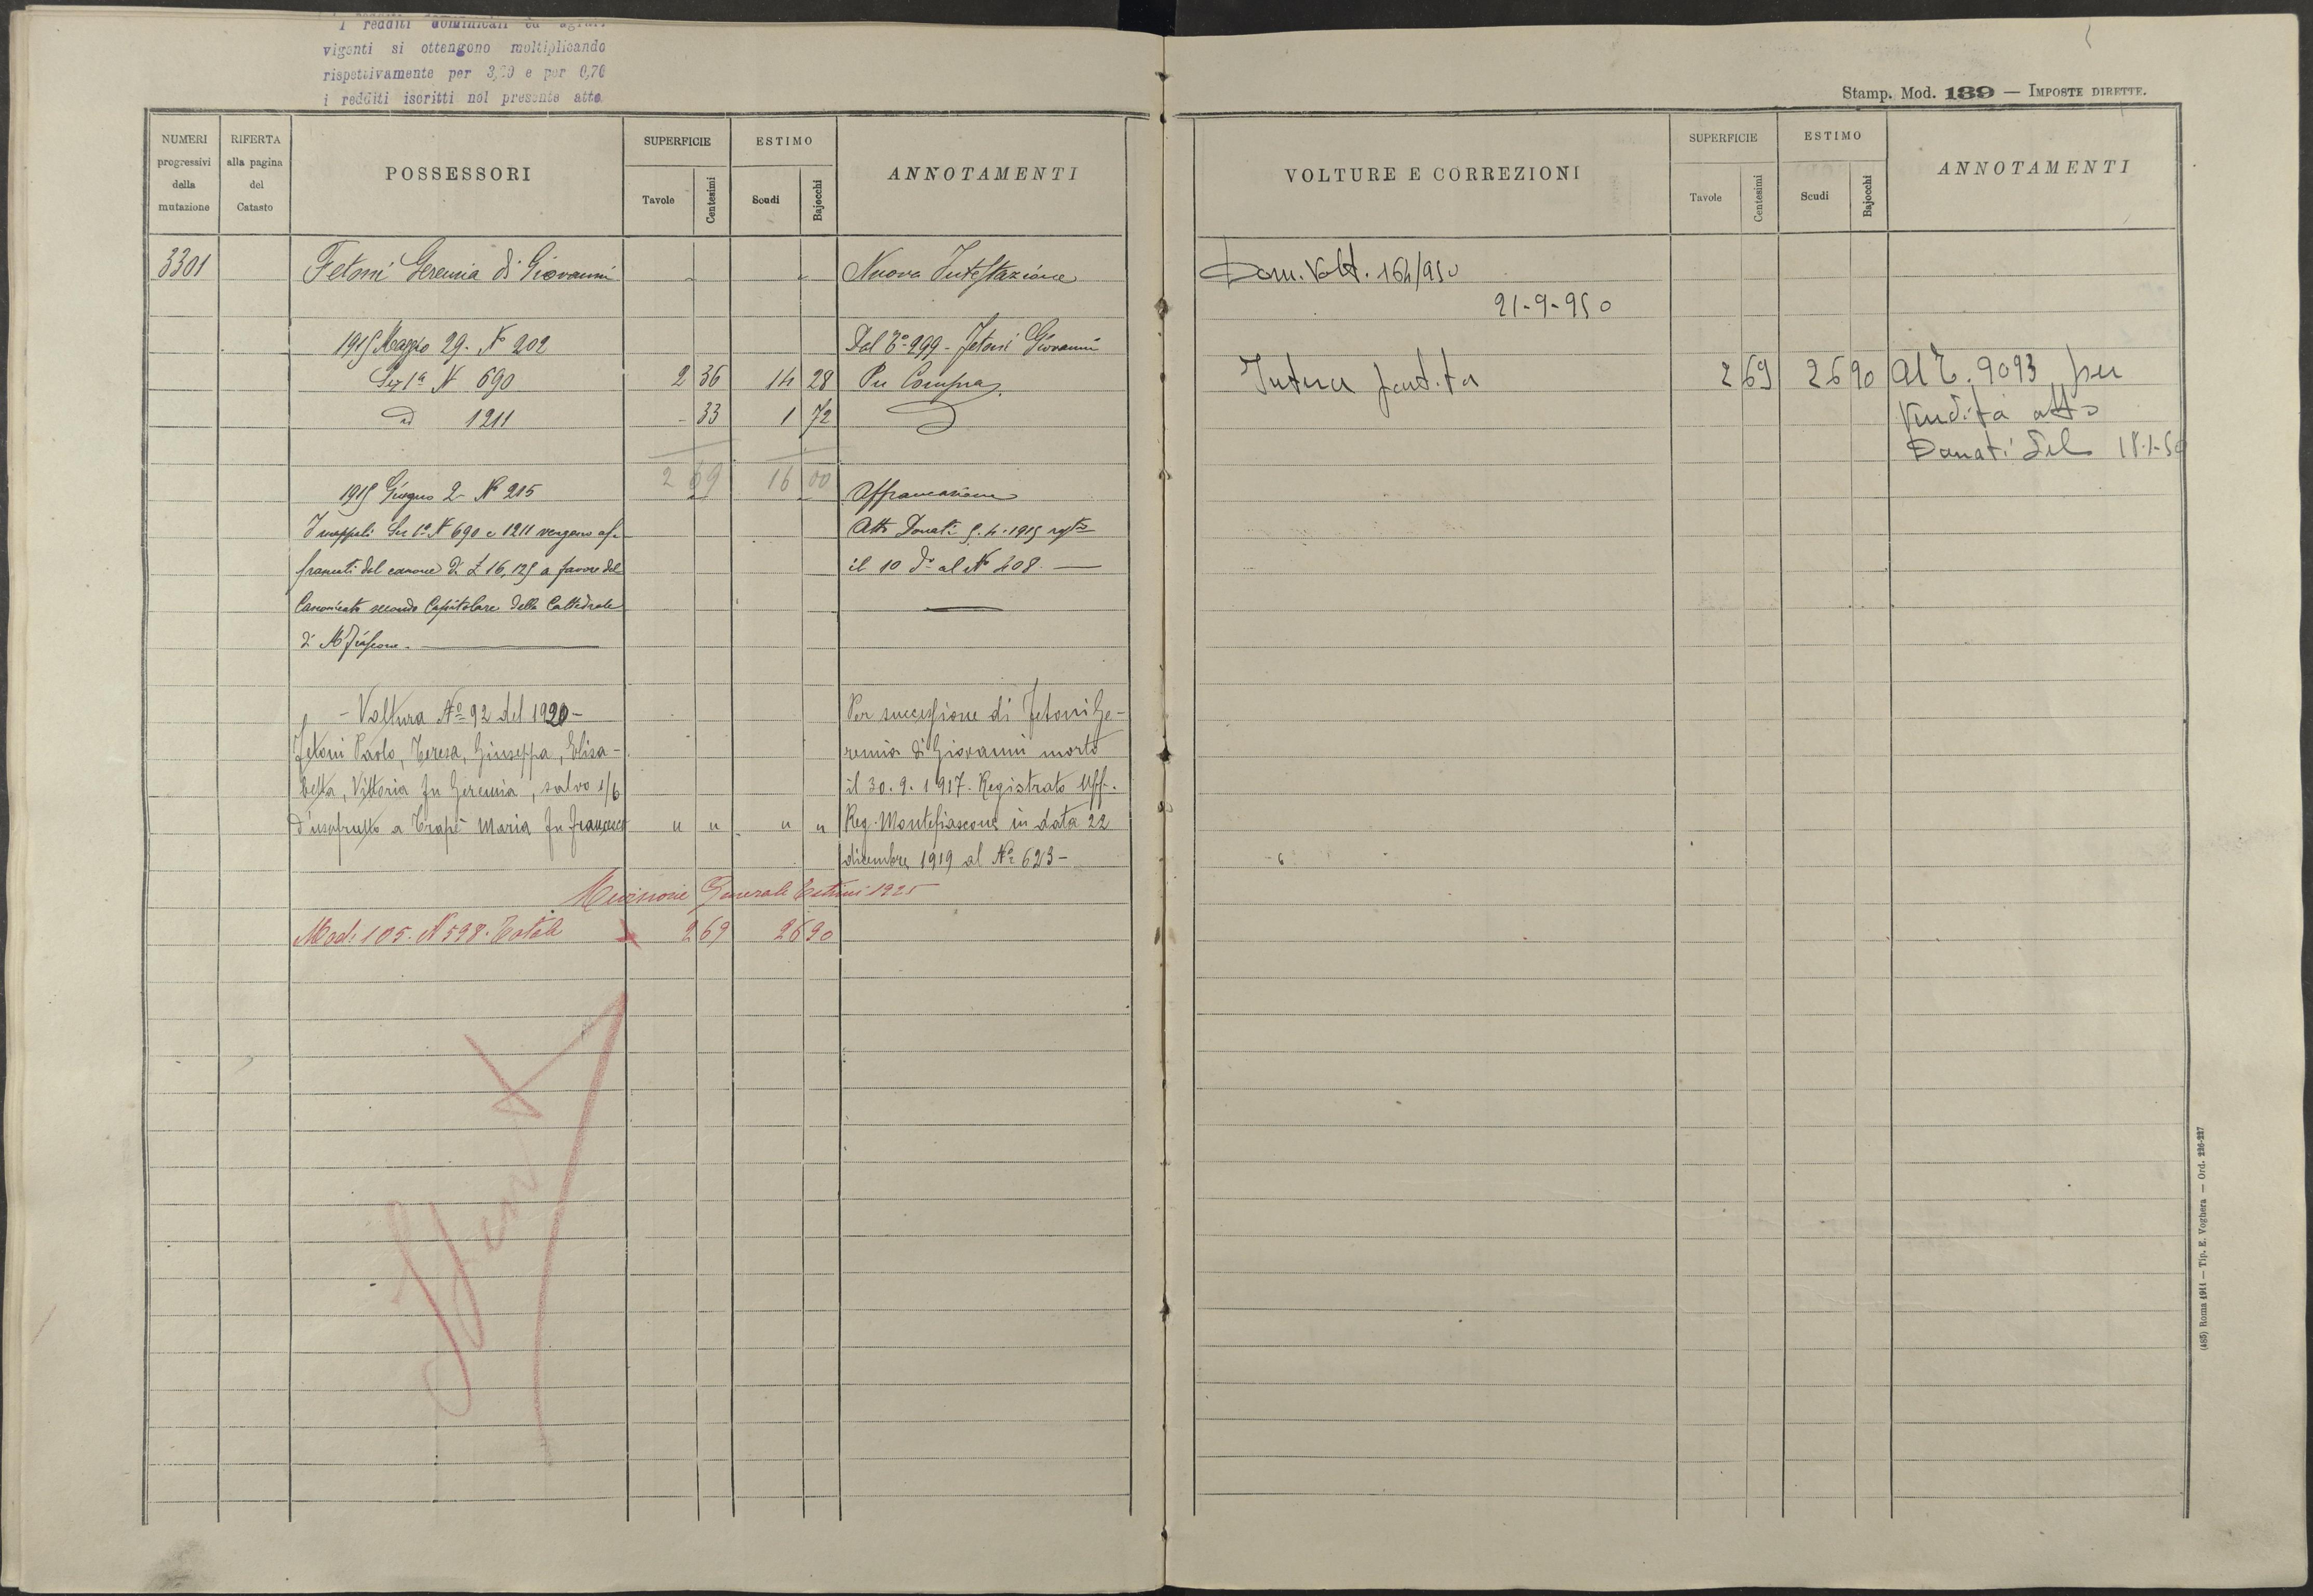 I redditi dominicali ed agrari
vigenti si ottengono moltiplicando
rispettivamente per 3,20 e per 0,70
i redditi iscritti nel presente atto.
NUMERI progressivi della mutazione
RIFERTA alla pagina del Catasto
POSSESSORI
SUPERFICIE
Tavole
Centesimi
ESTIMO
Scudi
Bajocchi
ANNOTAMENTI
3301 Fetoni Geremia di Giovanni " " Nuova Intestazione
1915 Maggio 29. Nº 202 Dal Tº 299 - Fetoni Giovanni
Sez 1ª Nº 690 2 36 14 28 Per Compra
id 1211 - 33 1 72
2 69 16 00
1915 Giugno 2 - Nº 215 Affrancazione
I mappali Sez 1ª Nº 690 e 1211 vengono af- Atto Donati 5.4.1915 regto
francati dal canone di £ 16,125 a favore del il 10 do al Nº 408. —
Canonicato secondo Capitolare della Cattedrale
di M. Fiascone. —
- Voltura Nº 92 del 1920 - Per successione di Fetoni Ge-
Fetoni Paolo, Teresa, Giuseppa, Elisa- remia di Giovanni morto
betta, Vittoria fu Geremia, salvo 1/6 il 30.9.1917. Registrato Uff.
d'usufrutto a Trapè Maria fu Francesco " " " " Reg. Montefiascone in data 22
dicembre 1919 al Nº 623 -
Revisione Generale Estimi 1925
Mod. 105. Nº 598. Totale 2 69 26 90
Stamp. Mod. 139 — IMPOSTE DIRETTE.
VOLTURE E CORREZIONI
SUPERFICIE
Tavole
Centesimi
ESTIMO
Scudi
Bajocchi
ANNOTAMENTI
Dom. Volt. 164/950
21-9-950
Intera partita 2 69 26 90 Al T. 9093 per
vendita atto
Donati del
(485) Roma 1914 — Tip. E. Voghera — Ord. 226-227